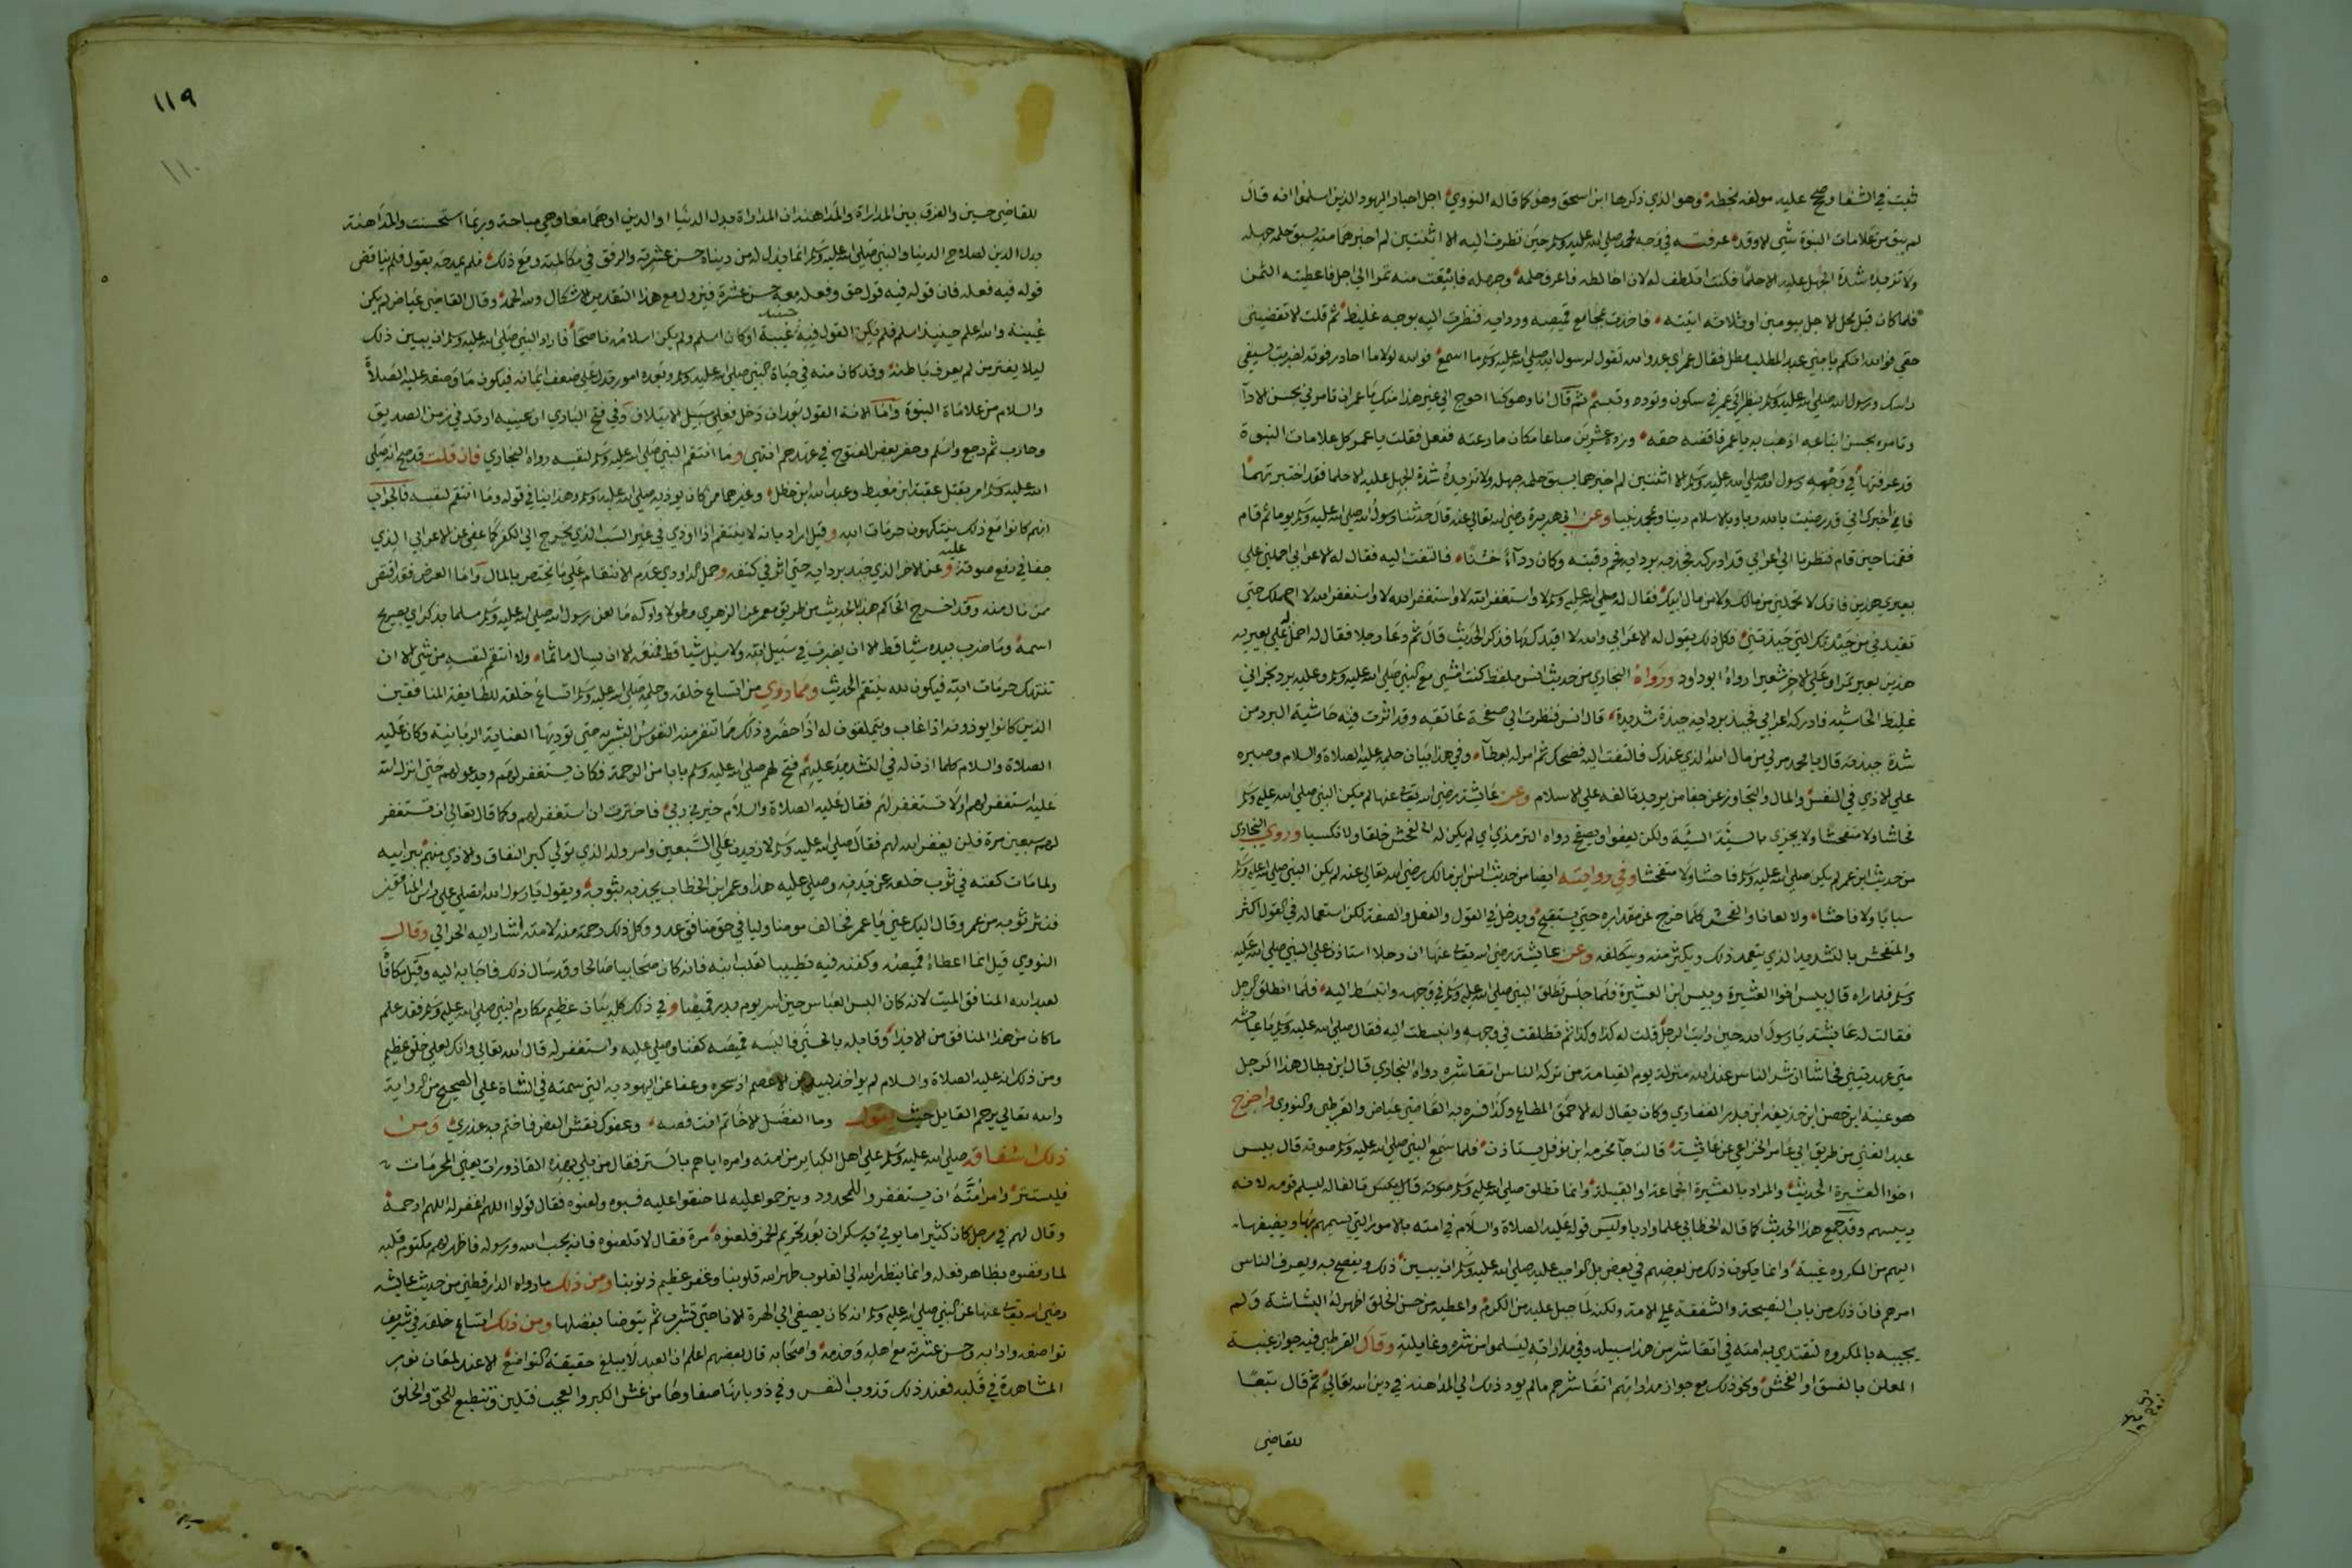 ثبت في الشفا وصح عليه مولفه بخطه وهو الذي ذكرها ابن اسحق وهو كما قاله النووي اجل احبار اليهود الذين اسلموا انه قال
لم يبق من علامات النبوة شي الا وقد عرفته في وجه محمد صلي الله عليه وسلم حين نظرت اليه الا اثنتين لم اخبرهما منه يسبق حلمه جهله
ولا تزيده شدة الجهل عليه الا حلما فكنت اتلطف له لان اخالطه فاعرف حلمه وجهله فابتعت منه تمرا الي اجل فاعطيته الثمن
فلما كان قبل محل الاجل بيومين او ثلاثة اتيته فاخذت بمجامع قميصه وردايه ونظرت اليه بوجه غليظ ثم قلت الا تقضيني
حقي فوالله انكم يا بني عبد المطلب مطل فقال عمر اي عدو الله تقول لرسول الله صلي الله عليه وسلم ما اسمع فوالله لولا ما احاذر فوته لضربت بسيفي
راسك ورسول الله صلي الله عليه وسلم ينظر الي عمر في سكون وتوده وتبسم ثم قال انا وهو كنا احوج الي غير هذا منك يا عمر ان تامرني بحسن الادا
وتامره بحسن اتباعه اذهب به يا عمر فاقضه حقه وزده عشرين صاعا مكان ما رعته ففعل فقلت يا عمر كل علامات النبوة
قد عرفتها في وجه رسول الله صلي الله عليه وسلم الا اثنتين لم اخبرهما يسبق حلمه جهله ولا تزيده شدة الجهل عليه الا حلما فقد اختبرتهما
فاني اخبرك اني قد رضيت بالله ربا وبالاسلام دينا وبمحمد نبيا وعن ابي هريرة رضي الله تعالي عنه قال حدثنا رسول الله صلي الله عليه وسلم يوما ثم قام
فقمنا حين قام فنظرنا الي اعرابي قد ادركه فجذبه بردايه فحمر رقبته وكان رداء خشنا فالتفت اليه فقال له الاعرابي احملني علي
بعيري هذين فانك لا تحملني من مالك ولا من مال ابيك فقال له صلي الله عليه وسلم لا واستغفر الله لا واستغفر الله لا واستغفر الله لا احملك حتي
تقيدني من جبذتك التي جبذتني فكل ذلك يقول له الاعرابي والله لا اقيدكها فذكر الحديث قال ثم دعا رجلا فقال له احمل له علي بعيريه
هذين بعير تمرا وعلي الاخر شعيرا رواه ابو داود ورواه البخاري من حديث انس بلفظ كنت امشي مع النبي صلي الله عليه وسلم وعليه برد نجراني
غليظ الحاشية فادركه اعرابي فجبذ بردايه جبذة شديدة قال انس فنظرت الي صفحة عاتقه وقد اثرت فيه حاشية البرد من
شدة جبذته قال يا محمد مر لي من مال الله الذي عندك فالتفت اليه فضحك ثم امر له بعطاء وفي هذا بيان حلمه عليه الصلاة والسلام وصبره
علي الاذي في النفس والمال والتجاوز عن جفا من يريد تالفه علي الاسلام وعن عايشة رضي الله تعالي عنها لم يكن النبي صلي الله عليه وسلم
فحاشا ولا متفحشا ولا يجزي بالسيئة السيئة ولكن يعفو ويصفح رواه الترمذي اي لم يكن له الفحش خلقا ولا مكتسبا وروي البخاري
من حديث ابن عمر لم يكن صلي الله عليه وسلم فاحشا ولا متفحشا وفي روايته ايضا من حديث انس ابن مالك رضي الله تعالي عنه لم يكن النبي صلي الله عليه وسلم
سبابا ولا فاحشا ولا لعانا والفحش كلما خرج عن مقداره حتي يستقبح ويدخل في القول والفعل والصفة لكن استعماله في القول اكثر
والمتفحش بالتشديد الذي يتعمد ذلك ويكثر منه ويتكلفه وعن عايشة رضي الله تعالي عنها ان رجلا استاذن علي النبي صلي الله عليه
وسلم فلما راه قال بيس اخوا العشيرة وبيس ابن العشيرة فلما جلس تطلق النبي صلي الله عليه وسلم في وجهه وانبسط اليه فلما انطلق الرجل
فقالت له عايشة يا رسول الله حين رايت الرجل قلت له كذا وكذا ثم تطلقت في وجهه وانبسطت اليه فقال صلي الله عليه وسلم يا عايشة
متي عهدتيني فحاشا ان شر الناس عند الله منزلة يوم القيامة من تركه الناس اتقا شره رواه البخاري قال ابن بطال هذا الرجل
هو عيينة ابن حصن ابن حذيفة ابن بدر الفزاري وكان يقال له الاحمق المطاع وكذا فسره به القاضي عياض والقرطبي والنووي واخرج
عبد الغني من طريق ابي عامر الخزاعي عن عايشة قالت جا مخرمة ابن نوفل يستاذن فلما سمع النبي صلي الله عليه وسلم صوته قال بيس
اخوا العشيرة الحديث والمراد بالعشيرة الجماعة او القبيلة وانما تطلق صلي الله عليه وسلم في وجهه تالفا له ليسلم قومه لانه
رييسهم وقد جمع هذا الحديث كما قاله الخطابي علما وادبا وليس قوله عليه الصلاة والسلام في امته بالامور التي يسميهم بها ويضيفها
اليهم من المكروه غيبة وانما يكون ذلك من بعضهم في بعض بل الواجب عليه صلي الله عليه وسلم ان يبين ذلك ويفصح به ويعرف الناس
امرهم فان ذلك من باب النصيحة والشفقة علي الامة ولكنه لما جبل عليه من الكرم واعطيه من حسن الخلق اظهر له البشاشة ولم
يجبهه بالمكروه لتقتدي به امته في اتقا شر من هذا سبيله وفي مداراته ليسلموا من شره وغايلته وقال القرطبي فيه جواز غيبة
المعلن بالفسق او الفحش ونحو ذلك مع جواز مداراتهم اتقا شرهم ما لم يود ذلك الي المداهنة في دين الله تعالي ثم قال تبعا
للقاضي
١١٩
١١٠
للقاضي حسين والفرق بين المداراة والمداهنة ان المداراة بذل الدنيا او الدين او هما معا وهي مباحة وربما استحسنت والمداهنة
بذل الدين لصلاح الدنيا والنبي صلي الله عليه وسلم انما بذل له من دنياه حسن عشرته والرفق في مكالمته ومع ذلك فلم يمدحه بقول فلم يناقض
قوله فيه فعله فان قوله فيه قول حق وفعله معه حسن عشرة فيزول مع هذا التقدير الاشكال ولله الحمد وقال القاضي عياض لم يكن
عيينة والله اعلم حينيذ اسلم فلم يكن القول فيه غيبة او كان اسلم ولم يكن اسلامه ناصحا فاراد النبي صلي الله عليه وسلم ان يبين ذلك
ليلا يغتر من لم يعرف باطنه وقد كان منه في حياة النبي صلي الله عليه وسلم وبعده امور تدل علي ضعف ايمانه فيكون ما وصفه عليه الصلاة
والسلام من علامات النبوة واما الانة القول بعد ان دخل فعلي سبيل الايتلاف وفي فتح الباري ان عيينه ارتد في زمن الصديق
وحارب ثم رجع واسلم وحضر بعض الفتوح في عهد عمر انتهي وما انتقم النبي صلي الله عليه وسلم لنفسه رواه البخاري فان قلت قد صح انه صلي
الله عليه وسلم امر بقتل عقبة ابن معيط وعبد الله ابن خطل وغيرهما ممن كان يوذيه صلي الله عليه وسلم وهذا ينافي قوله وما انتقم لنفسه فالجواب
انهم كانوا مع ذلك ينتهكون حرمات الله وقيل اراد بانه لا ينتقم اذا اوذي في غير السبب الذي يخرج الي الكفر كما عفي عن الاعرابي الذي
جفا في رفع صوته عليه وعن الاخر الذي جبذ بردايه حتي اثر في كتفه وحمل الداودي عدم الانتقام علي ما يختص بالمال واما العرض فقد اقتص
ممن نال منه وقد اخرج الحاكم هذا الحديث من طريق معمر عن الزهري مطولا واوله ما لعن رسول الله صلي الله عليه وسلم مسلما بذكر اي بصريح
اسمه وما ضرب بيده شيا قط الا ان يضرب في سبيل الله ولا سيل شيا قط فمنعه الا ان يسال ماثما ولا انتقم لنفسه من شي الا ان
تنتهك حرمات الله فيكون لله ينتقم الحديث ومما روي من اتساع خلقه وحلمه صلي الله عليه وسلم اتساع خلقه للطايفة المنافقين
الذين كانوا يوذونه اذا غاب ويتملقون له اذا حضر وذلك مما تنفر منه النفوس البشرية حتي تويدها العناية الربانية وكان عليه
الصلاة والسلام كلما اذن له في التشديد عليهم فتح لهم صلي الله عليه وسلم بابا من الرحمة فكان يستغفر لهم ويدعو لهم حتي انزل الله
عليه استغفر لهم او لا تستغفر لهم فقال عليه الصلاة والسلام خيرني ربي فاخترت ان استغفر لهم وكما قال تعالي ان تستغفر
لهم سبعين مرة فلن يغفر الله لهم فقال صلي الله عليه وسلم لازيدن علي السبعين وامر ولد الذي تولي كبر النفاق والاذي منهم ببر ابيه
ولما مات كفنه في ثوب خلعه عن بدنه وصلي عليه هذا وعمر ابن الخطاب يجذبه بثوبه ويقول يا رسول الله اتصلي علي راس المنافقين
فنثر ثوبه من عمر وقال اليك عني يا عمر فخالف مومنا وليا في حق منافق عدو وكل ذلك رحمة منه لامته اشار اليه الحرالي وقال
النووي قيل انما اعطاه قميصه وكفنه فيه تطييبا لقلب ابنه فانه كان صحابيا صالحا وقد سال ذلك فاجابه اليه وقيل مكافاة
لعبد الله المنافق الميت لانه كان البس العباس حين اسر يوم بدر قميصا وفي ذلك كله بيان عظيم مكارم النبي صلي الله عليه وسلم فقد علم
ما كان من هذا المنافق من الايذاء وقابله بالحسني فالبسه قميصه كفنا وصلي عليه واستغفر له قال الله تعالي وانك لعلي خلق عظيم
ومن ذلك انه عليه الصلاة والسلام لم يواخذ لبيد بن الاعصم اذ سحره وعفا عن اليهودية التي سمته في الشاة علي الصحيح من الرواية
والله تعالي يرحم القايل حيث يقول وما الفضل الا خاتم انت فصه وعفوك نقش الفص فاختم به عذري ومن
ذلك اشفاقه صلي الله عليه وسلم علي اهل الكباير من امته وامره اياهم بالستر فقال من بلي بهذه القاذورات يعني المحرمات
فليستتر وامر امته ان يستغفروا للمحدود ويترحموا عليه لما حنقوا عليه فسبوه ولعنوه فقال قولوا اللهم اغفر له اللهم ارحمه
وقال لهم في رجل كان كثيرا ما يوتي به سكران بعد تحريم الخمر فلعنوه مرة فقال لا تلعنوه فانه يحب الله ورسوله فاظهر لهم مكتوم قلبه
لما رفضوه بظاهر فعله وانما ينظر الله الي القلوب طهر الله قلوبنا وغفر عظيم ذنوبنا ومن ذلك ما رواه الدارقطني من حديث عايشة
رضي الله تعالي عنها عن النبي صلي الله عليه وسلم انه كان يصغي الي الهرة الانا حتي تشرب ثم يتوضا بفضلها ومن ذلك اتساع خلقه في شريف
تواضعه وادابه وحسن عشرته مع اهله وخدمه واصحابه قال بعضهم اعلم ان العبد لا يبلغ حقيقة التواضع الا عند لمعان نور
المشاهدة في قلبه فعند ذلك تذوب النفس وفي ذوبانها صفاوها من غش الكبر والعجب فتلين وتنطبع للحق والخلق